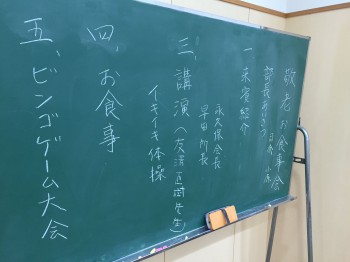 敬老お食事会
部長あいさつ
一、来賓紹介
永久保会長
早田所長
三、講演（友清
イキイキ体操
四、お食事
五、ビンゴゲーム大会